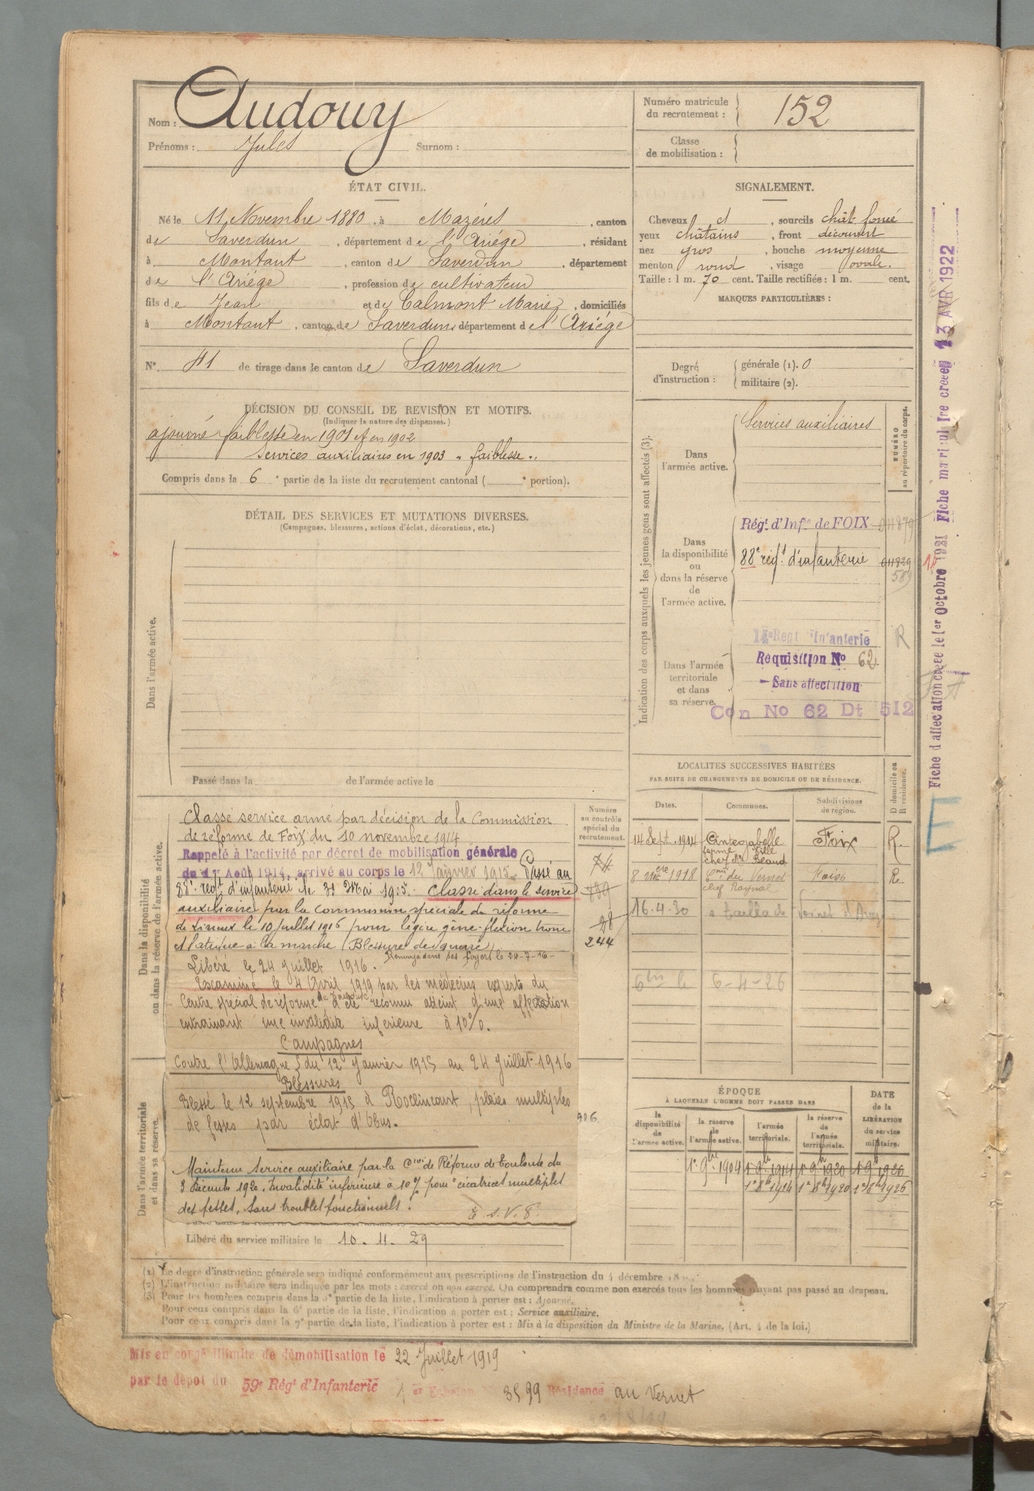 Nom : Audouy
Prénoms : Jules Surnom :
Numéro matricule du recrutement : 152
Classe de mobilisation :
ÉTAT CIVIL.
Né le 11 Novembre 1880, à Mazères, canton
de Saverdun, département de l'Ariège, résidant
à Montaut, canton de Saverdun, département
de l'Ariège, profession de cultivateur
fils de Jean et de Calmont Marie, domiciliés
à Montaut, canton de Saverdun, département de l'Ariège
N° 41 de tirage dans le canton de Saverdun
SIGNALEMENT.
Cheveux d, sourcils chât foncé
yeux châtains, front découvert
nez gros, bouche moyenne
menton rond, visage ovale.
Taille : 1 m. 70 cent. Taille rectifiée : 1 m. cent.
MARQUES PARTICULIÈRES :
Degré d'instruction : générale (1). 0
militaire (2).
DÉCISION DU CONSEIL DE REVISION ET MOTIFS.
(Indiquer la nature des dispenses.)
ajourné faiblesse en 1901 et en 1902
Services auxiliaires en 1903 " faiblesse ".
Compris dans la 6e partie de la liste du recrutement cantonal ( e portion).
DÉTAIL DES SERVICES ET MUTATIONS DIVERSES.
(Campagnes, blessures, actions d'éclat, décorations, etc.)
Dans l'armée active.
Passé dans la de l'armée active le
Indication des corps auxquels les jeunes gens sont affectés (3).
NUMÉRO au répertoire du corps.
Dans l'armée active.
Services auxiliaires
Dans la disponibilité ou dans la réserve de l'armée active.
Régt d'Infie de FOIX
88e régt d'infanterie
Dans l'armée territoriale et dans sa réserve.
Régt Infanterie
Requisition No 62
Sans affectation
Con No 62 Dt 512
R
Fiche d'affectation créée le 1er Octobre 1921 Fiche matriculaire créée 13 AVR 1922
LOCALITÉS SUCCESSIVES HABITÉES
PAR SUITE DE CHANGEMENTS DE DOMICILE OU DE RÉSIDENCE.
Dates. Communes. Subdivisions de région. D domicile ou R résidence.
14 Sept. 1911 Cintegabelle Foix R.
8 1918 du Vernet Foix R.
chez Raynal
16.4.30
6-4-26
Dans la disponibilité ou dans la réserve de l'armée active.
Numéro au contrôle spécial du recrutement.
244
Classé service armé par décision de la Commission
de réforme de Foix du 10 novembre 1914
Rappelé à l'activité par décret de mobilisation générale
du 1er Août 1914, arrivé au corps le 12 Janvier 1915. Passé au
88e régt d'infanterie le 31 Mai 1915. Classé dans le service
auxiliaire par la commission spéciale de réforme
de Limoux le 10 juillet 1916 pour légère gêne flexion tronc
et latérale à la marche (Blessures de guerre)
Libéré le 24 juillet 1916. Renvoyé dans ses foyers le
Examiné le 4 Avril 1919 par les médecins experts du
Centre spécial de réforme a été reconnu atteint d'une affection
entraînant une invalidité inférieure à 10%.
Campagnes
Contre l'Allemagne du 12 janvier 1915 au 24 juillet 1916
Blessures
Blessé le 12 septembre 1915 à Roclincourt, plaies multiples
de fesses par éclat d'obus.
Maintenu service auxiliaire par la Con de Réforme de Toulouse du
3 Décembre 1920. Invalidité inférieure à 10% pour "cicatrices multiples
des fesses, sans troubles fonctionnels".
Dans l'armée territoriale et dans sa réserve.
Libéré du service militaire le 10.11.29
ÉPOQUE
À LAQUELLE L'HOMME DOIT PASSER DANS
DATE de la LIBÉRATION du service militaire.
la disponibilité de l'armée active.
la réserve de l'armée active.
l'armée territoriale.
la réserve de l'armée territoriale.
1er 9bre 1904
(1) Le degré d'instruction générale sera indiqué conformément aux prescriptions de l'instruction du 4 décembre
(2) L'instruction militaire sera indiquée par les mots : exercé ou non exercé. On comprendra comme non exercés tous les hommes n'ayant pas passé au drapeau.
(3) Pour les hommes compris dans la 5e partie de la liste, l'indication à porter est : Ajourné.
Pour ceux compris dans la 6e partie de la liste, l'indication à porter est : Service auxiliaire.
Pour ceux compris dans la 7e partie de la liste, l'indication à porter est : Mis à la disposition du Ministre de la Marine. (Art. 4 de la loi.)
Mis en congé illimité de démobilisation le 22 Juillet 1919
par le dépôt du 59e Régt d'Infanterie Echelon 3599 Résidence au Vernet